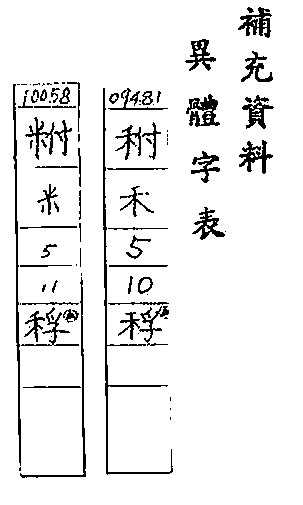 補充資料
異體字表
09481
䄮
禾
5
10
稃
10058
粰
米
5
11
稃